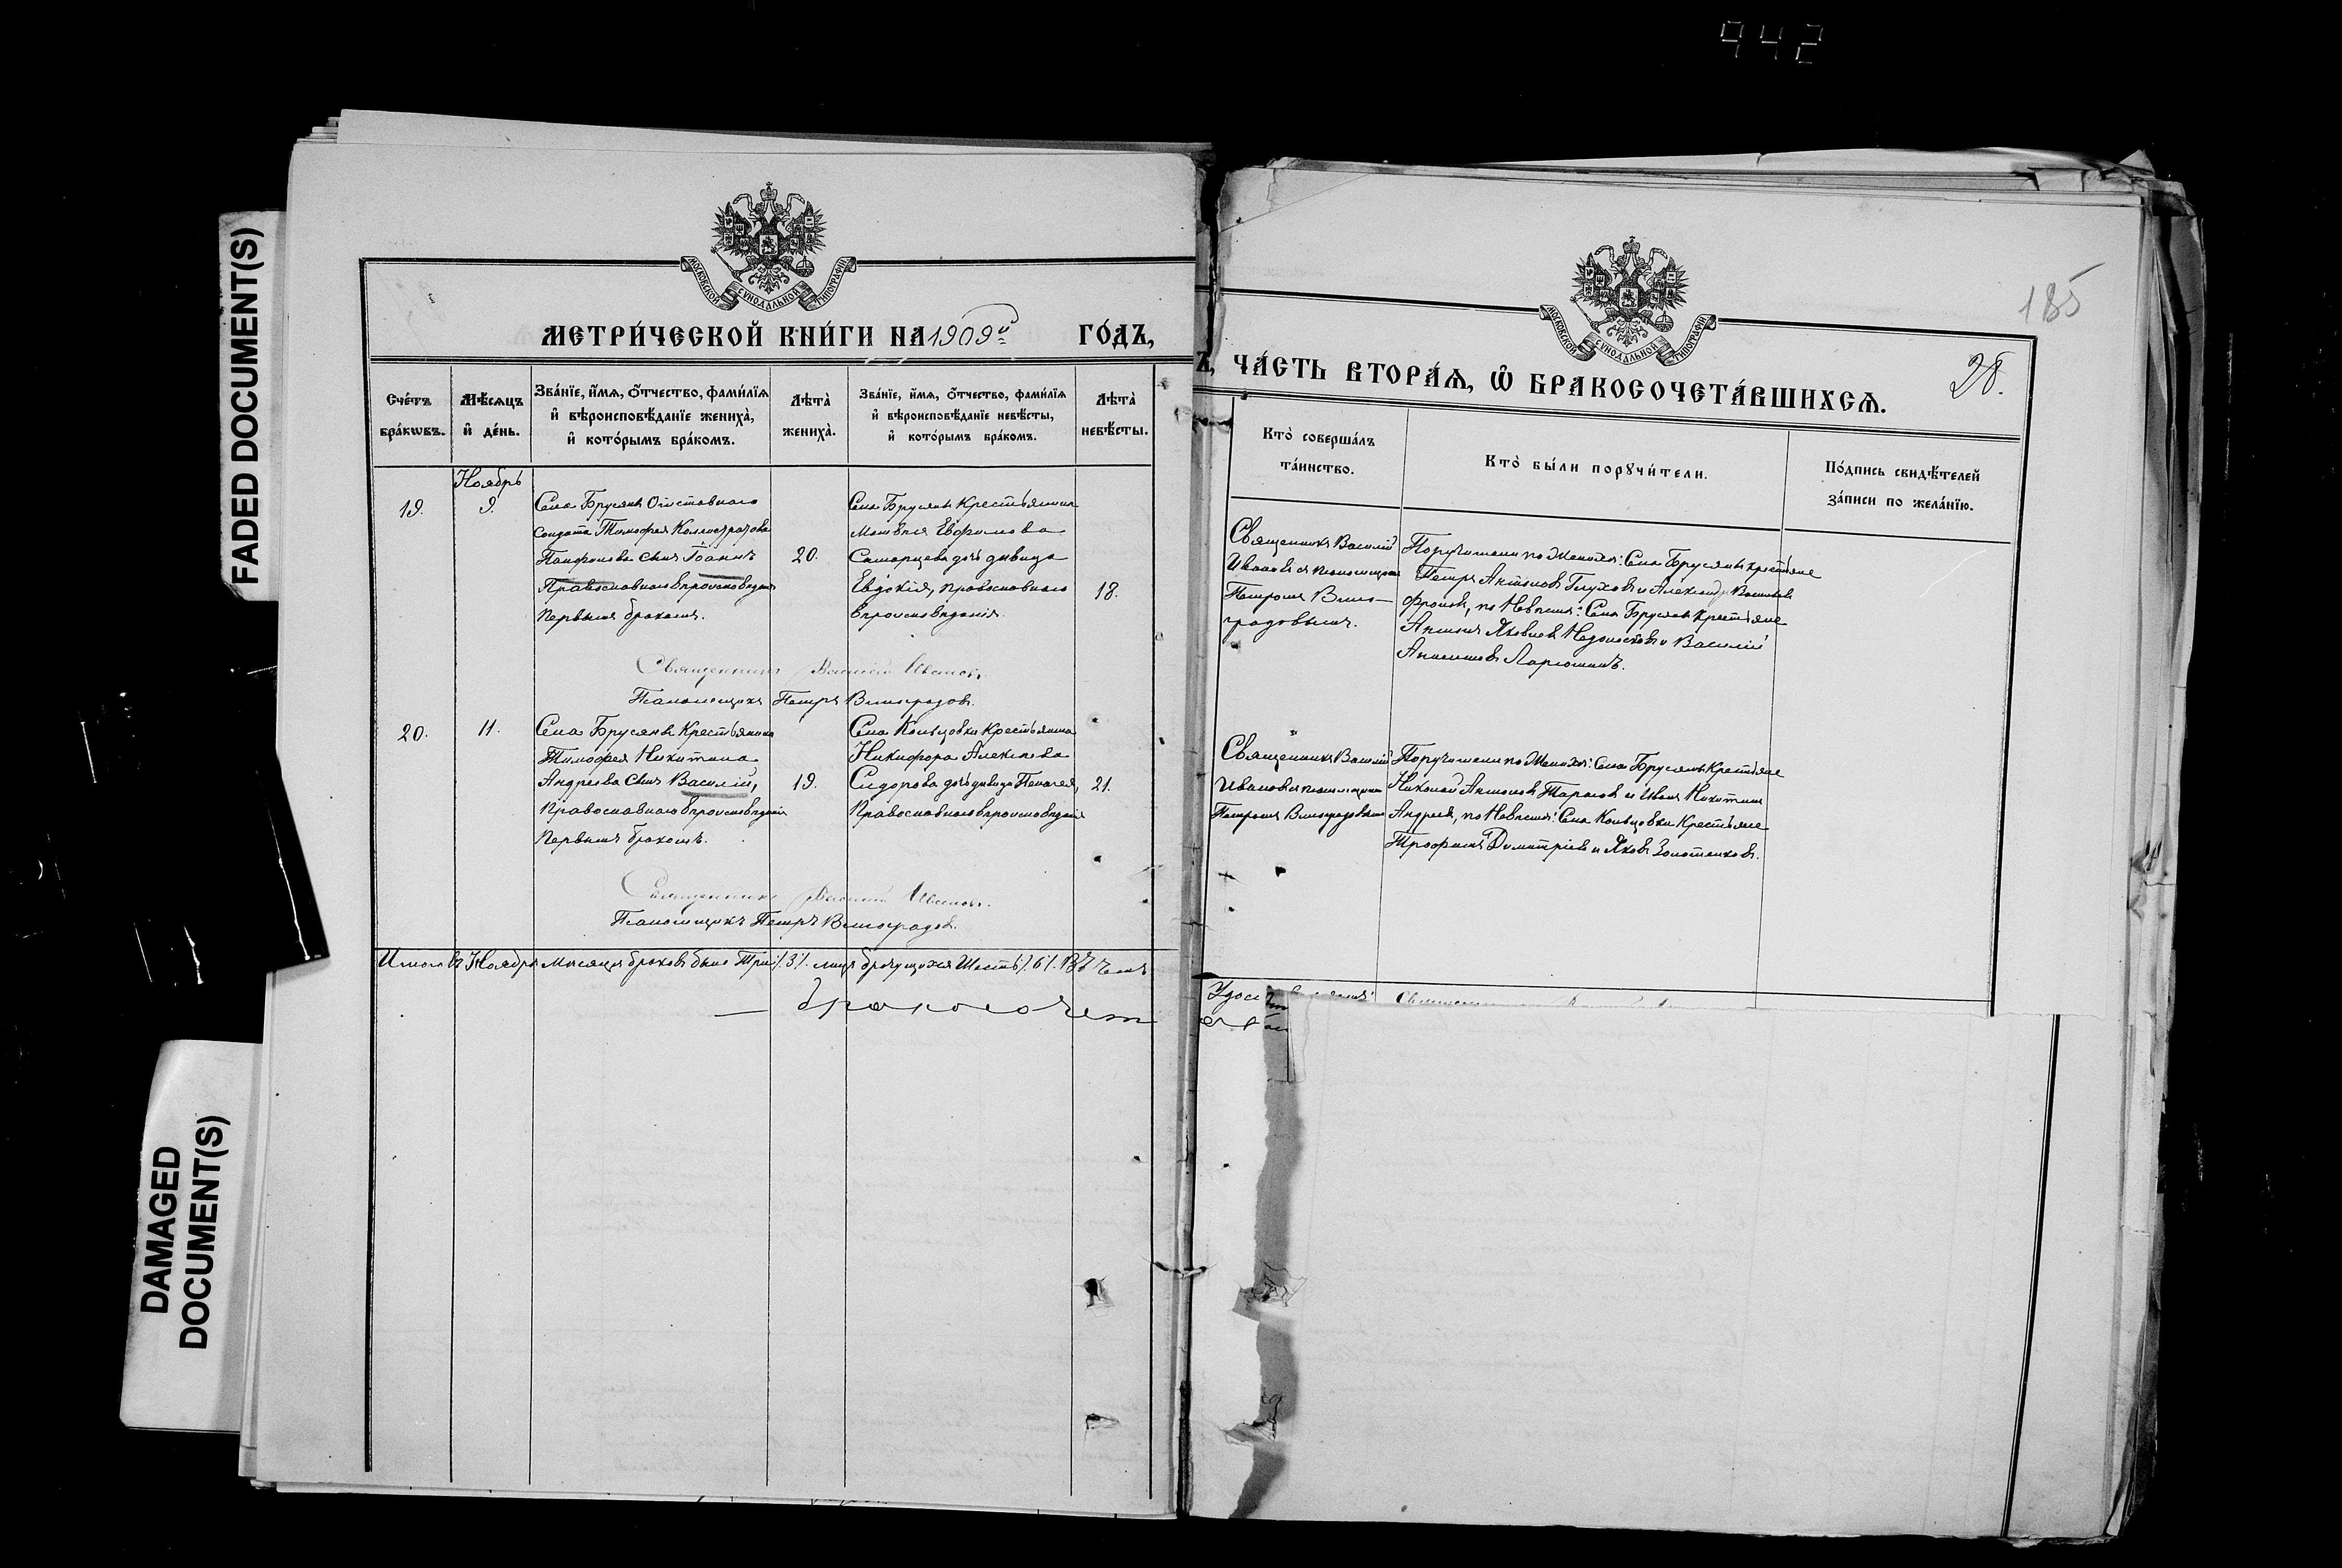 942
FADED DOCUMENT(S)
DAMAGED
DOCUMENT(S)
МОСКОВСКОЙ СѴНОДАЛЬНОЙ ТИПОГРАФІИ
МЕТРИ́ЧЕСКОЙ КНИ́ГИ НА 1909й ГО́ДЪ,
Сче́тъ бра́кѡвъ.
Мѣ́сяцъ и҆ де́нь.
Зва́нїе, и҆́мѧ, ѻ҆́тчество, фами́лїѧ
и҆ вѣроисповѣ́данїе жениха̀,
и҆ кото́рымъ бра́комъ.
Лѣта̀ жениха̀.
Зва́нїе, и҆́мѧ, ѻ҆́тчество, фами́лїѧ
и҆ вѣроисповѣ́данїе невѣ́сты,
и҆ кото́рымъ бра́комъ.
Лѣта̀ невѣ́сты.
Ноябрь
19.
9.
Села Брусянъ Отставного
солдата Тимофея Каллистратова
Панфилова сынъ Іоаннъ
Православнаго вѣроисповѣданія
Первымъ бракомъ.
20.
Села Брусянъ Крестьянина
Матвѣя Евфимова
дочь дѣвица
Евдокія, православнаго
вѣроисповѣданія.
18.
Священникъ Василій Ивановъ.
Псаломщикъ Петръ Виноградов.
20.
11.
Села Брусянъ Крестьянина
Тимофея Никитина
Андреева сынъ Василій,
Православнаго вѣроисповѣданія
Первымъ бракомъ.
19.
Села Кольцовки Крестьянина
Никифора Алексѣева
Сидорова дочь дѣвица Пелагея,
Православнаго вѣроисповѣданія
21.
Священникъ Василій Ивановъ.
Псаломщикъ Петръ Виноградов.
Итого въ Ноябрѣ мѣсяцѣ браковъ было Три /.3/. лицъ брачущихся Шесть /.6/.
бракосочет
МОСКОВСКОЙ СѴНОДАЛЬНОЙ ТИПОГРАФІИ
185
Ъ, ЧА́СТЬ ВТОРА́Ѧ, Ѡ҆ БРАКОСОЧЕТА́ВШИХСѦ.
28.
Кто̀ соверша́лъ
та́инство.
Кто̀ бы́ли порꙋчи́тели.
По́дпись свидѣ́телей
за́писи по жела́нїю.
Священникъ Василій
Ивановъ съ псаломщикомъ
Петромъ Вино-
градовымъ.
Поручители по женихѣ: Села Брусянъ крестьяне
Петръ Антоновъ Глуховъ и Александръ Васильевъ
Фроловъ, по невѣстѣ: Села Брусянъ крестьяне
Антонъ Яковлевъ и Василій
Анисимовъ Ларюшинъ.
Священникъ Василій
Ивановъ съ псаломщикомъ
Петромъ Виноградовымъ
Поручители по женихѣ: Села Брусянъ Крестьяне
Николай Антоновъ Тарасовъ и Иванъ Никитинъ
Андреевъ, по невѣстѣ: Села Кольцовки Крестьяне
Трофимъ Димитріевъ и Яковъ Золотенковъ.